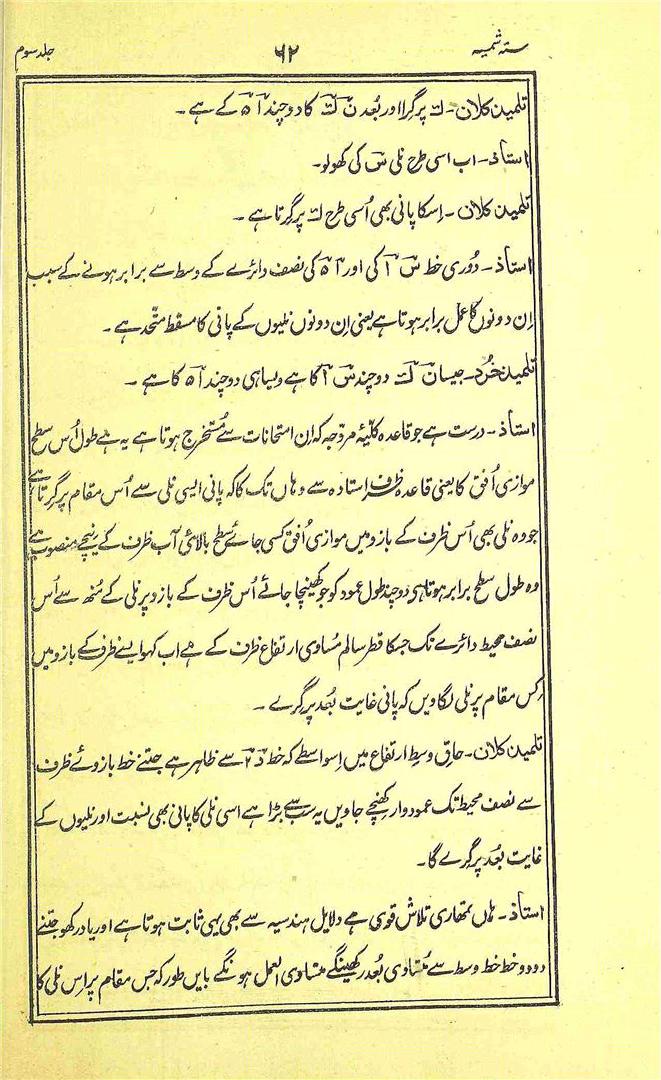 ستہ شمسیہ ۶۲ جلد سوم
تلمیذ کلان۔ لـ پر گرا اور بُعد ن لـ کا دوچند آ ہ کے ہے۔
استاذ۔ اب اسی طرح نلی س کی کھولو۔
تلمیذ کلان۔ اِسکا پانی بھی اُسی طرح لـ پر گرتا ہے۔
استاذ۔ دُوری خط س آ کی اور آ ہ کی نصف دائرے کے وسط سے برابر ہونے کے سبب
اِن دونوں کا عمل برابر ہوتا ہے یعنی اِن دونوں نلیوں کے پانی کا مسقط متّحد ہے۔
تلمیذ خُرد۔ جیسا ن لـ دوچند س آ کا ہے ویسا ہی دوچند آ ہ کا ہے۔
استاذ۔ درست ہے جو قاعدہ کلیّۂ مروّجہ کہ اِن امتحانات سے مُستخرج ہوتا ہے یہ ہے طول اُس سطح
موازی اُفق کا یعنی قاعدہ ظرف استادہ سے وہاں تک کا کہ پانی ایسی نلی سے اُس مقام پر گرتا ہے
جو وہ نلی بھی اُس ظرف کے بازو میں موازی اُفق کسی جائے سطح بالائی آب ظرف کے نیچے منصوب ہے
وہ طول سطح برابر ہوتا ہی دوچند طول عمود کو جو کھینچا جائے اُس ظرف کے بازو پر نلی کے مُنھ سے اُس
نصف محیط دائرے تک جسکا قطر سالم مُساوی ارتفاع ظرف کے ہے اب کہو ایسے ظرف کے بازو میں
کس مقام پر نلی لگاویں کہ پانی غایت بُعد پر گرے۔
تلمیذ کلان۔ حاق وسطِ ارتفاع میں اِسواسطے کہ خط د ۲ سے ظاہر ہے جتنے خط بازوئے ظرف
سے نصف محیط تک عمودوار کھنچے جاویں یہ سب سے بڑا ہے اسی نلی کا پانی بھی نسبت اور نلیوں کے
غایت بُعد پر گرے گا۔
استاذ۔ ہاں تمھاری تلاش قوی ہے دلایل ہندسیہ سے بھی یہی ثابت ہوتا ہے اور یاد رکھو جتنے
دو دو خط خط وسط سے مُتساوی بُعد رکھینگے متساوی العمل ہونگے بایں طور کہ جس مقام پر اِس نلی کا